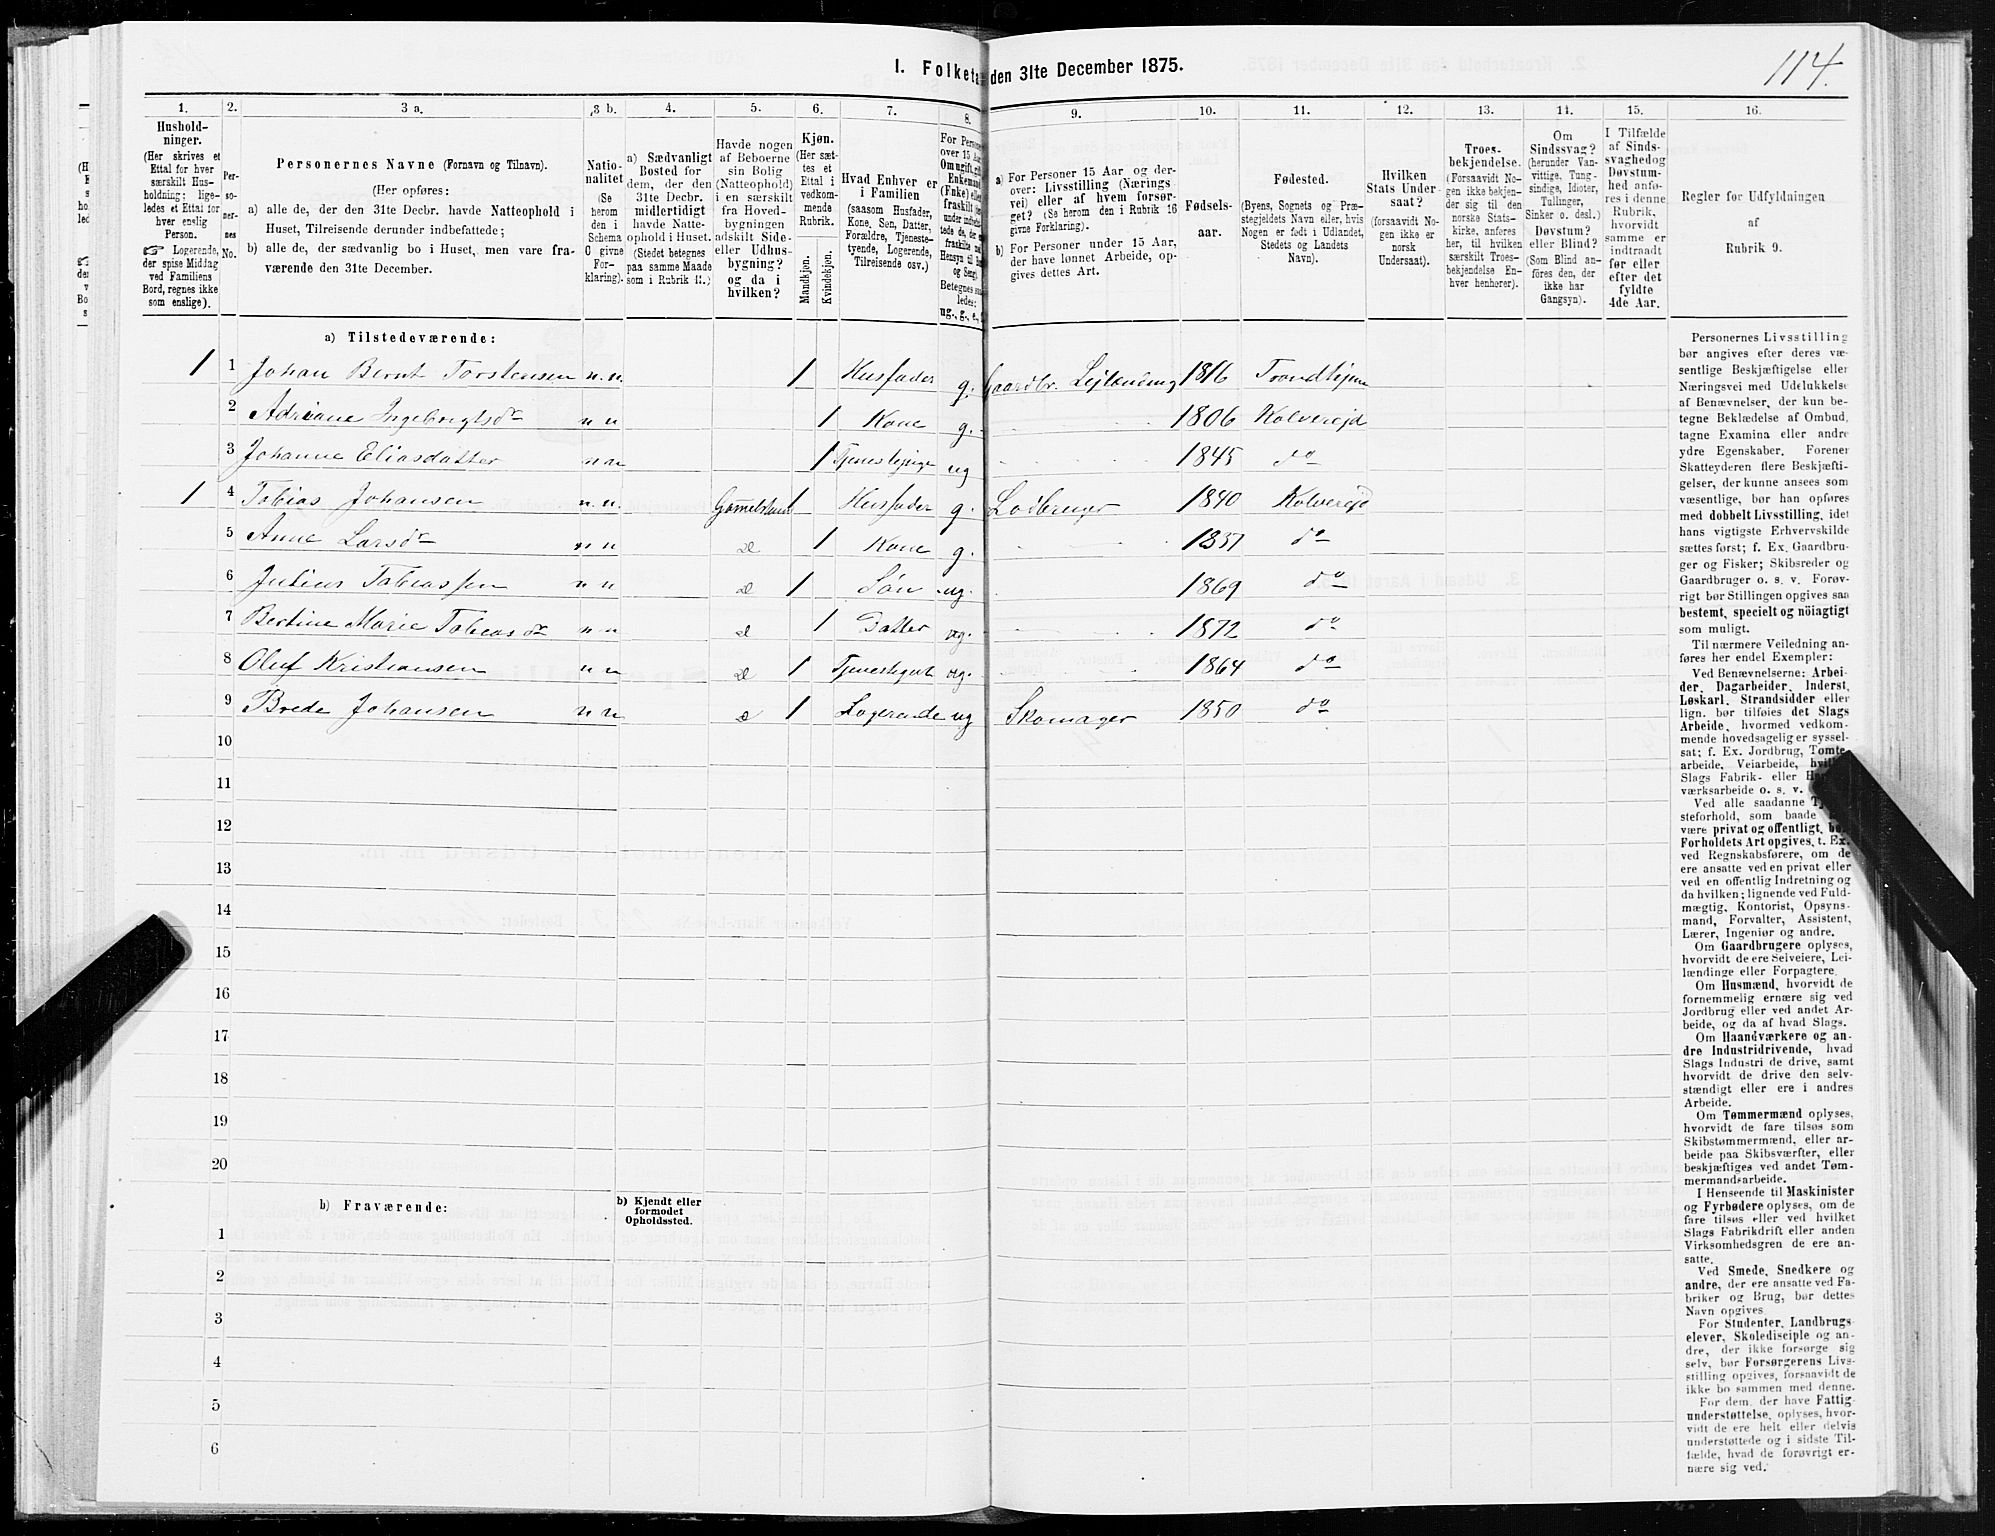 114.
I. Folketa den 31te December 1875.
1. 2. 3 a. 3 b. 4. 5. 6. 7. 8. 9. 10. 11. 12. 13. 14. 15. 16.
Hushold-
ninger.
(Her skrives et
Ettal for hver
særskilt Hus-
holdning; lige-
ledes et Ettal for
hver enslig
Person.
☞ Logerende,
der spise Middag
ved Familiens
Bord, regnes ikke
som enslige).
Per-
so-
ner-
nes
No.
Personernes Navne (Fornavn og Tilnavn).
(Her opføres:
a) alle de, der den 31te Decbr. havde Natteophold i
Huset, Tilreisende derunder indbefattede;
b) alle de, der sædvanlig bo i Huset, men vare fra-
værende den 31te December.
Natio-
nalitet
(Se
herom
den i
Schema
C givne
For-
klaring).
a) Sædvanligt
Bosted for
dem, der den
31te Decbr.
midlertidigt
havde Natte-
ophold i Huset.
(Stedet betegnes
paa samme Maade
som i Rubrik 11.)
Havde nogen
af Beboerne
sin Bolig
(Natteophold)
i en særskilt
fra Hoved-
bygningen
adskilt Side-
eller Udhus-
bygning?
og da i
hvilken?
Kjøn.
(Her sæt-
tes et
Ettal i
vedkom-
mende
Rubrik.
Mandkjøn.
Kvindekjøn.
Hvad Enhver er
i Familien
(saasom Husfader,
Kone, Søn, Datter,
Forældre, Tjeneste-
tyende, Logerende,
Tilreisende osv.)
For Persone
over 15 Aa
Om ugift, gif
Enkemand
(Enke) elle
fraskilt
Betegnes saa
ledes:
ug., g., e.,
a) For Personer 15 Aar og der-
over: Livsstilling (Nærings
vei) eller af hvem forsør-
get? (Se herom den i Rubrik 16
givne Forklaring).
b) For Personer under 15 Aar,
der have lønnet Arbeide, op-
gives dettes Art.
Fødsels-
aar.
Fødested.
(Byens, Sognets og Præ-
stegjeldets Navn eller, hvis
Nogen er født i Udlandet,
Stedets og Landets
Navn).
Hvilken
Stats Under-
saat?
(forsaavidt No-
gen ikke er
norsk
Undersaat).
Troes-
bekjendelse.
(Forsaavidt No-
gen ikke bekjen-
der sig til den
norske Stats-
kirke, anføres
her, til hvilken
særskilt Troes-
bekjendelse En-
hver henhører).
Om
Sindssvag?
(herunder Van-
vittige, Tung-
sindige, Idioter,
Tullinger,
Sinker o. desl.)
Døvstum?
eller Blind?
(Som Blind an-
føres den, der
ikke har
Gangsyn).
I Tilfælde
af Sinds-
svaghed og
Døvstum-
hed anfø-
res i denne
Rubrik,
hvorvidt
samme er
indtraadt
før eller
efter det
fyldte
4de Aar.
Regler for Udfyldningen
af
Rubrik 9.
a) Tilstedeværende:
1 1 Johan Bernt Torstensen n. n. 1 Husfader g. Gaardbr. Lejlænding 1816 Trondhjem
2 Adriane Ingebrigtsdr n n 1 Kone g. 1806 Kolvereid
3 Johanne Eliasdatter n n 1 Tjenestepige ug 1845 do
1 4 Tobias Johansen n. n. 1 Husfader g. Lodbruger 1840 Kolvereid
5 Anne Larsdr n n 1 Kone g. 1837 do
6 Julius Tobiassen n n 1 Søn ug. 1869 do
7 Bertine Marie Tobiasdr n n 1 Datter ug. 1872 do
8 Oluf Kristiansen n n 1 Tjenestegut ug. 1864 do
9 Brede Johansen n n 1 Logerende ug Skomager 1850 do
10
11
12
13
14
15
16
17
18
19
20
b) Fraværende:
b) Kjendt eller
formodet
Opholdssted.
1
2
3
4
5
6
Personernes Livsstilling
bør angives efter deres væ-
sentlige Beskjæftigelse eller
Næringsvei med Udelukkelse
af Benævnelser, der kun be-
tegne Beklædelse af Ombud,
tagne Examina eller andre
ydre Egenskaber. Forener
Skatteyderen flere Beskjæfti-
gelser, der kunne ansees som
væsentlige, bør han opføres
med dobbelt Livsstilling, idet
hans vigtigste Erhvervskilde
sættes først; f. Ex. Gaardbru-
ger og Fisker; Skibsreder og
Gaardbruger o. s. v. Forøv-
rigt bør Stillingen opgives saa
bestemt, specielt og nöiagtigt
som muligt.
Til nærmere Veiledning an-
føres her endel Exempler:
Ved Benævnelserne: Arbei-
der, Dagarbeider, Inderst,
Løskarl, Strandsidder eller
lign. bør tilføies det Slags
Arbeide, hvormed vedkom-
mende hovedsagelig er syssel-
sat; f. Ex. Jordbrug, Tomte-
arbeide, Veiarbeide, hvil
Slags Fabrik- eller Ha
værksarbeide o. s. v.
Ved alle saadanne Tj
steforhold, som baade
være privat og offentligt, bør
Forholdets Art opgives, t. Ex.
ved Regnskabsførere, om de
ere ansatte ved en privat eller
ved en offentlig Indretning og
da hvilken; lignende ved Fuld-
mægtig, Kontorist, Opsyns-
mand, Forvalter, Assistent,
Lærer, Ingeniør og andre.
Om Gaardbrugere oplyses,
hvorvidt de ere Selveiere, Lei-
lændinge eller Forpagtere.
Om Husmænd, hvorvidt de
fornemmelig ernære sig ved
Jordbrug eller ved andet Ar-
beide, og da af hvad Slags.
Om Haandværkere og an-
dre Industridrivende, hvad
Slags Industri de drive, samt
hvorvidt de drive den selv-
stændigt eller ere i andres
Arbeide.
Om Tømmermænd oplyses,
hvorvidt de fare tilsøs som
Skibstømmermænd, eller ar-
beide paa Skibsværfter, eller
beskjæftiges ved andet Tøm-
mermandsarbeide.
I Henseende til Maskinister
og Fyrbødere oplyses, om de
fare tilsøs eller ved hvilket
Slags Fabrikdrift eller anden
Virksomhedsgren de ere an-
satte.
Ved Smede, Snedkere og
andre, der ere ansatte ved Fa-
briker og Brug, bør dettes
Navn opgives.
For Studenter, Landbrugs-
elever, Skoledisciple og an-
dre, der ikke forsørge sig
selv, bør Forsørgerens Livs-
stilling opgives, forsaavidt de
ikke bo sammen med denne.
For dem, der have Fattig-
understøttelse, oplyses, hvor-
vidt de ere helt eller delvis
understøttede og i sidste Til-
fælde, hvad de forøvrigt er-
nære sig ved.